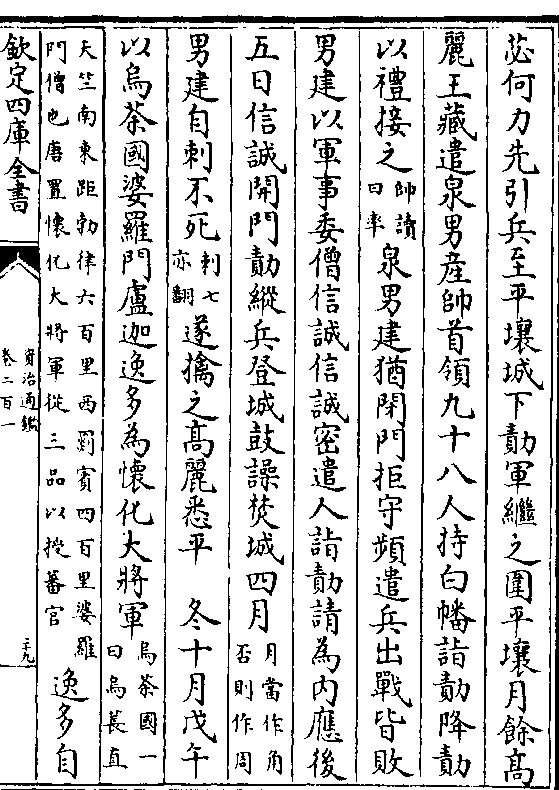 苾何力先引兵至平壤城下勣軍繼之圍平壤月餘高
麗王藏遣泉男產帥首領九十八人持白幡詣勣降勣
以禮接之帥讀曰率泉男建猶閉門拒守頻遣兵出戰皆敗
男建以軍事委僧信誠信誠密遣人詣勣請為内應後
五日信誠開門勣縱兵登城鼓譟焚城四月月當作角否則作周
男建自刺不死刺七亦翻遂擒之高麗悉平 冬十月戊午
以烏茶國婆羅門盧迦逸多為懷化大將軍烏茶國一曰烏萇直
天竺南東距勃律六百里西罽賓四百里婆羅門僧也唐置懷化大將軍從三品以授蕃官逸多自
欽定四庫全書
資治通鑑
卷二百一
二十九